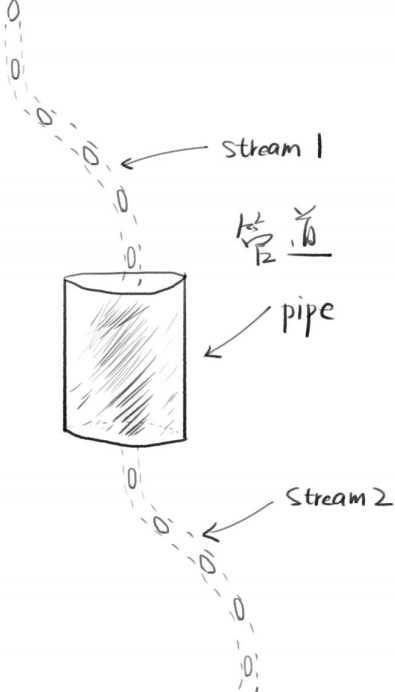 stream 1
管道
pipe
stream 2